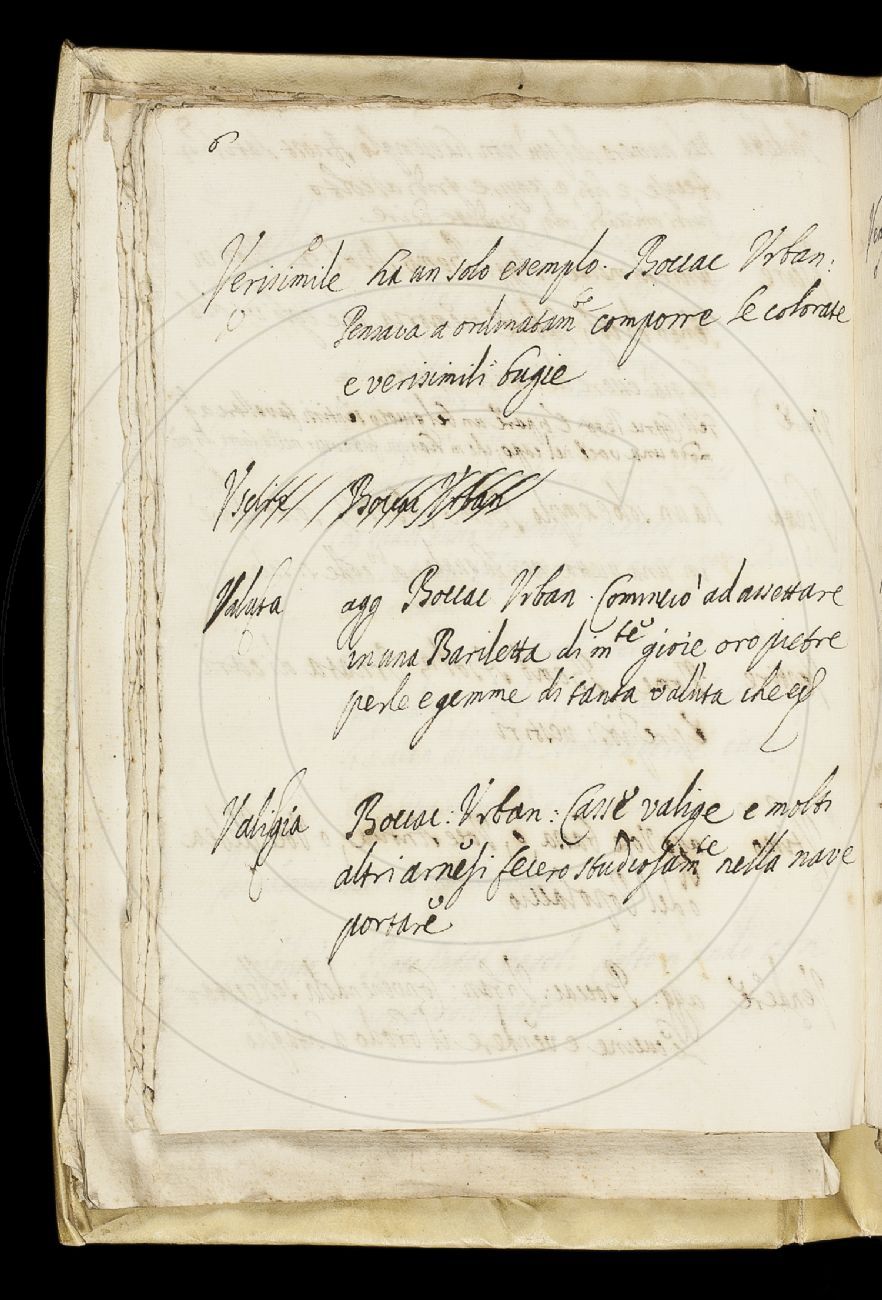 6
Verisimile ha un solo esempio. Boccac Urban:
Pensava a ordinatam.te comporre le colorate
e verisimili bugie
Uscire Boccac Urban
Valuta agg Boccac Urban. Cominciò ad assettare
in una Bariletta di m.te gioie oro pietre
perle e gemme di tanta valuta che
Valigia Boccac: Urban: Casse valige e molti
altri arnesi fecero studiosam.te nella nave
portare